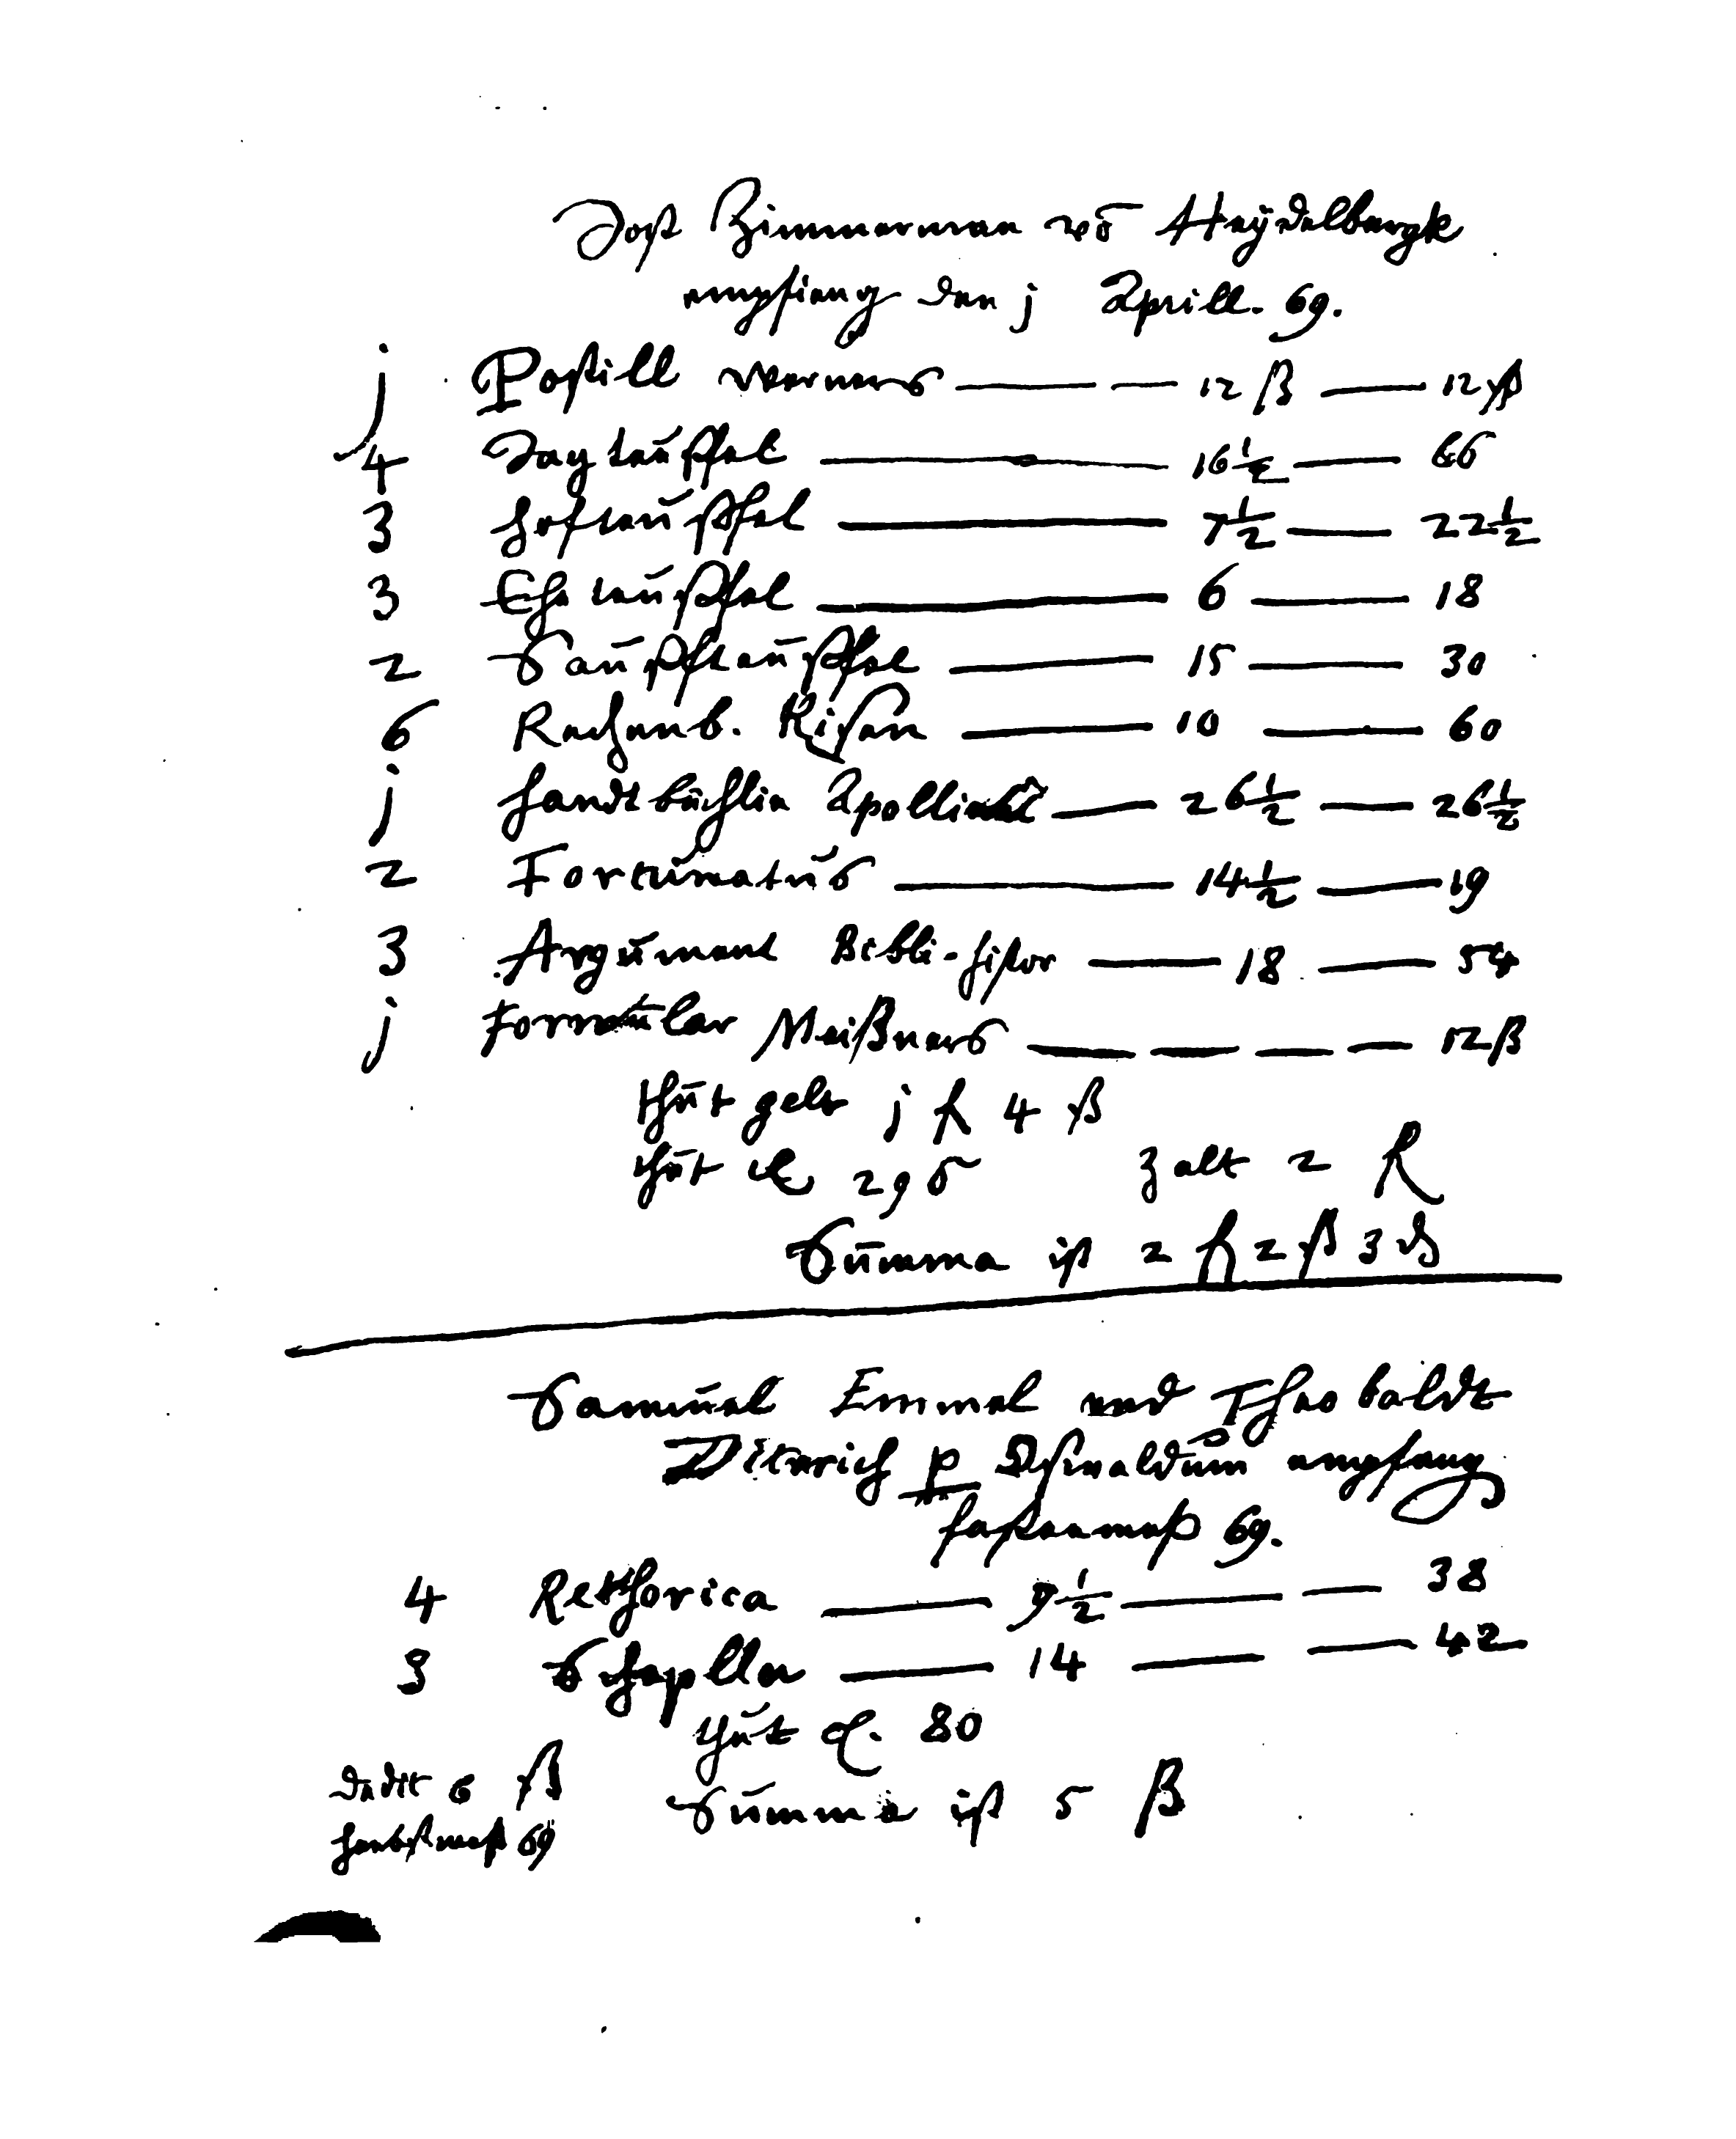 Jost Zimmerman vō Heÿdelbergk
empfieng den j Aprill. 69.
j Postill Werners — — 12 ß — 12 ß
4 Jagteuffel — 16½ — 66
3 Hofteuffel — 7½ — 22½
3 Ehe teuffel — 6 — 18
2 Sauffteuffel — 15 — 30
6 Rechenb. Risen — 10 — 60
j Handtbüchlin Apollinar — 26½ — 26½
2 Fortunatus — 14½ — 19
3 Argument Bibli-histor — 18 — 54
j Formular Meißners — — — — 12 ß
thut gelt j fl 4 ß
thut 296 zalt 2 fl
Summa ist 2 fl 2 ß 3 δ
Samuel Emmel und Theobaldt
Diterich p Oswaldum empfang
fastenmess 69.
4 Rethorica — 9½ — — 38
3 Schapller — 14 — — 42
thut 80
dedit 6 ß Summa ist 5 ß
herbstmess 69